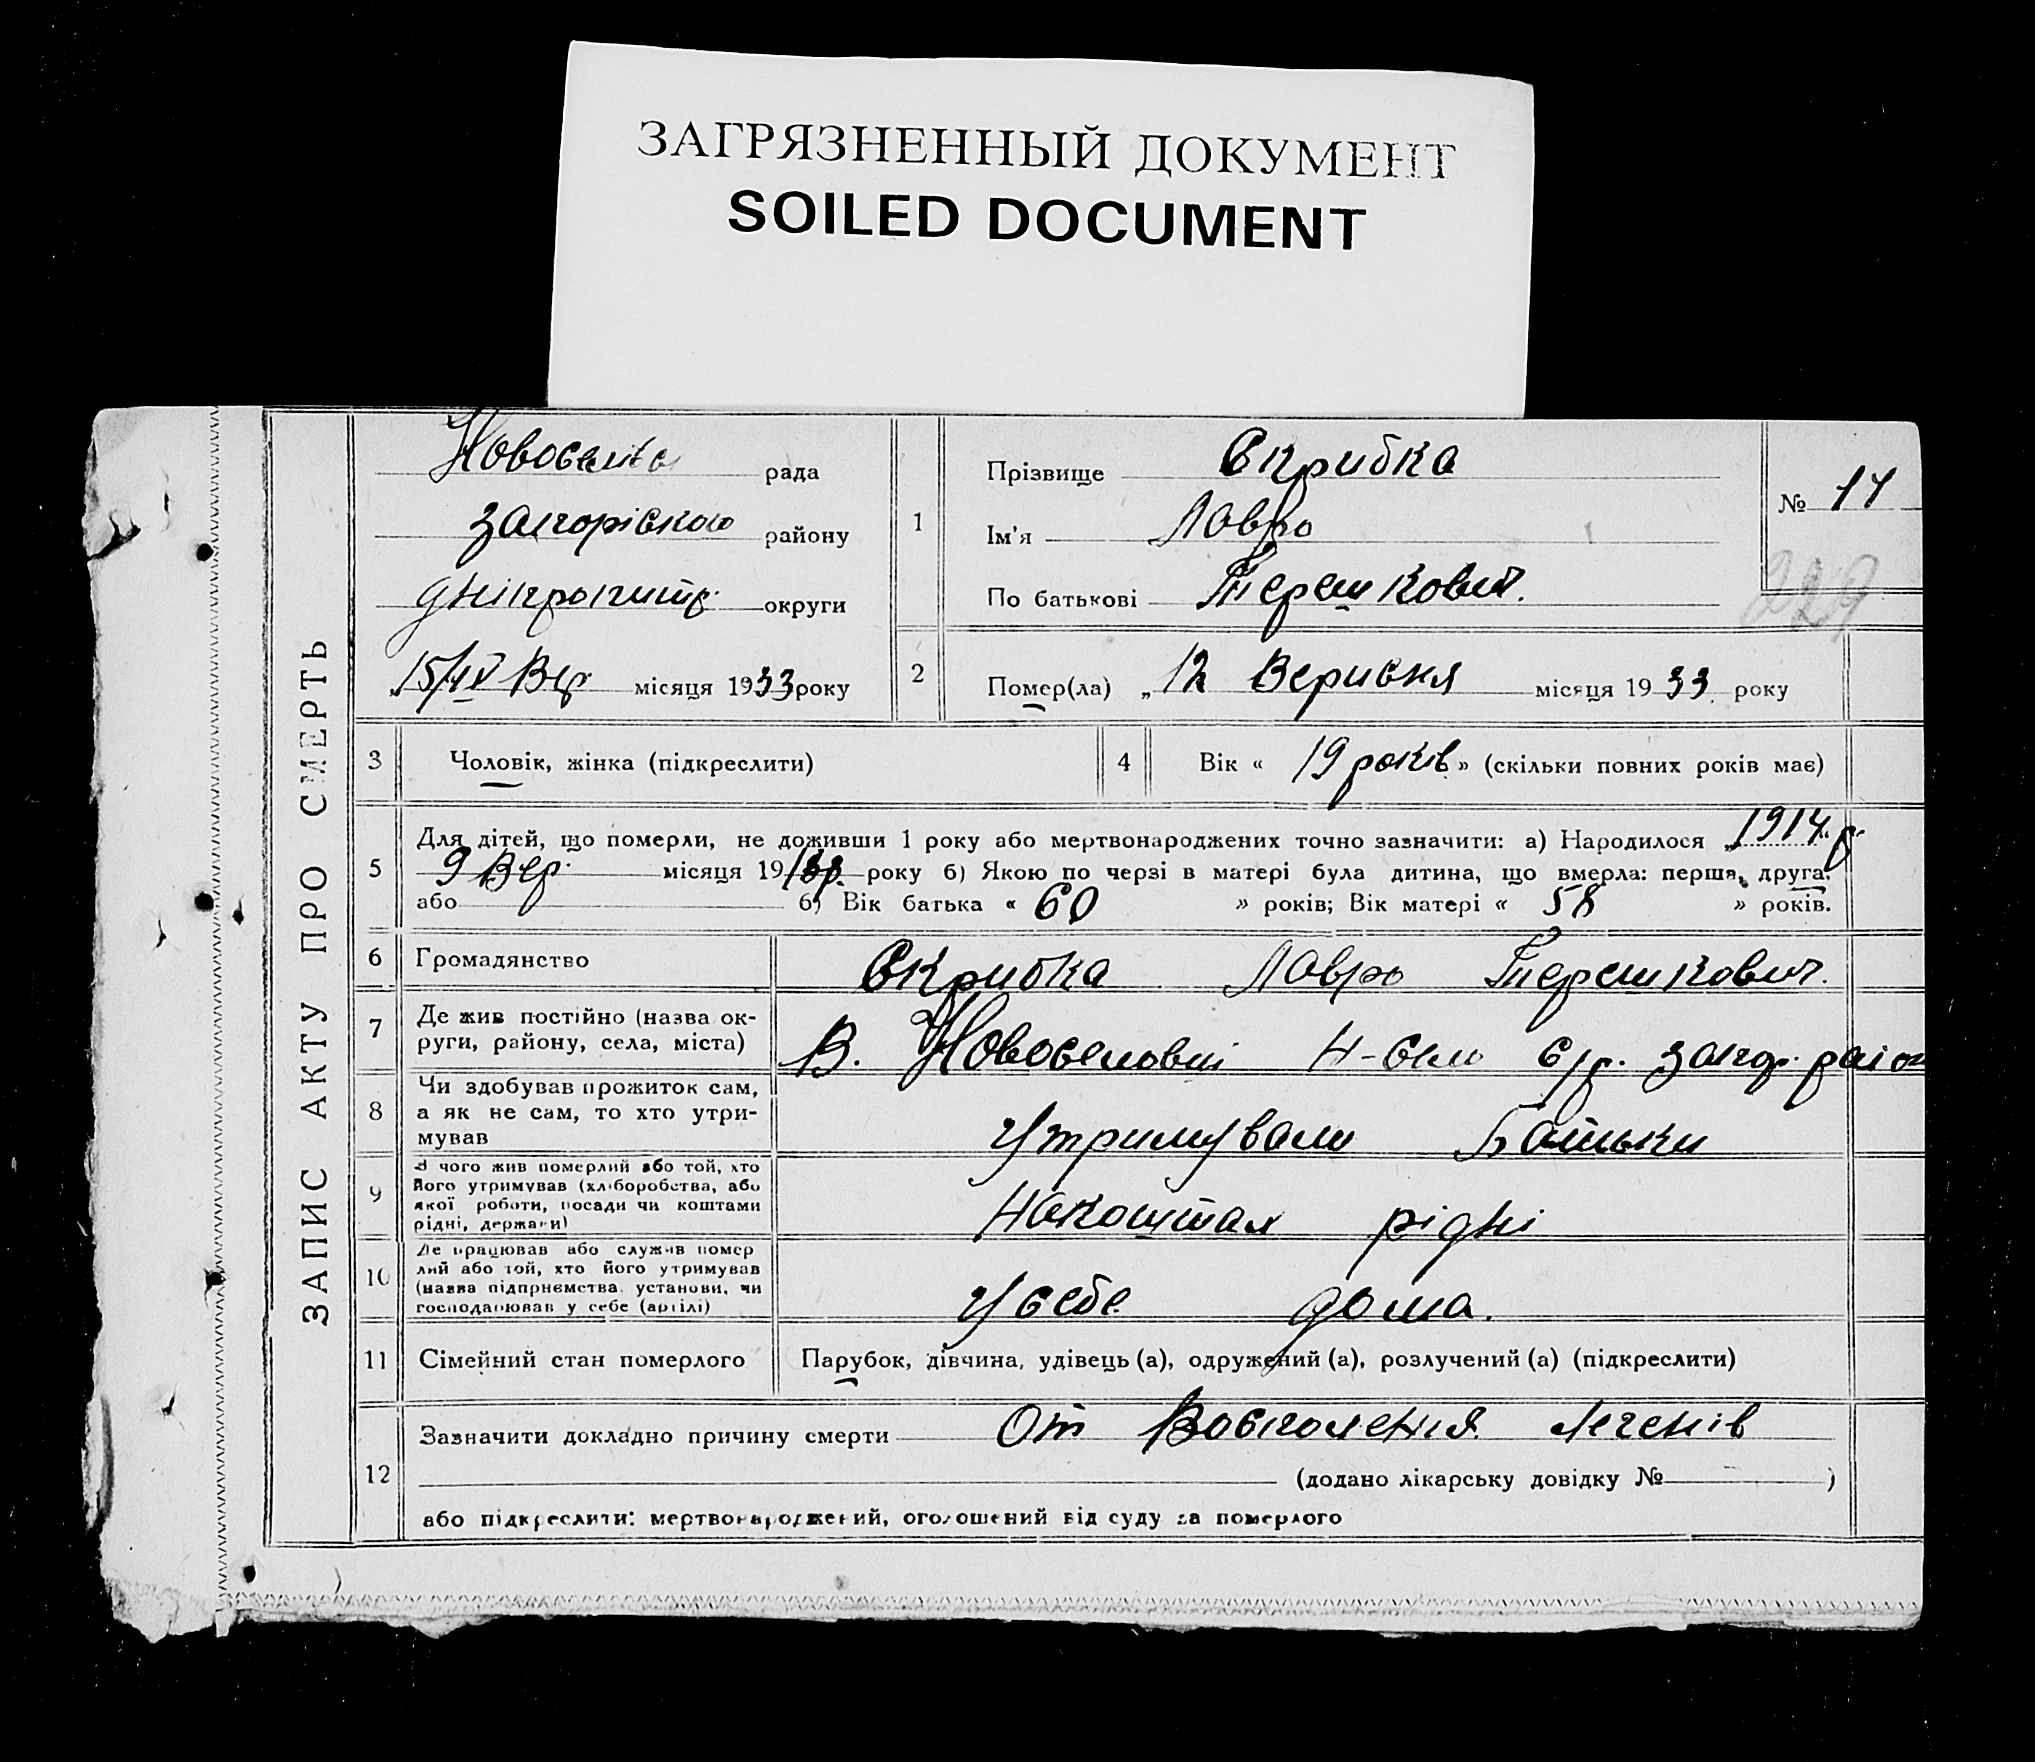 ЗАГРЯЗНЕННЫЙ ДОКУМЕНТ
SOILED DOCUMENT
ЗАПИС АКТУ ПРО СМЕРТЬ
рада
району
округи
15/IX Вер. місяця 1933 року
1
Прізвище Скрибка
Ім'я Лавро
По батькові Терешкович.
№ 11
229
2
Помер(ла) „ 12 Верисня місяця 1933 року
3 Чоловік, жінка (підкреслити)
4 Вік « 19 років » (скільки повних років має)
5 Для дітей, що померли, не доживши 1 року або мертвонароджених точно зазначити: а) Народилося „ 1914 р.
9 Вер. місяця 19 року б) Якою по черзі в матері була дитина, що вмерла: перша, друга,
або б) Вік батька « 60 » років; Вік матері « 58 » років.
6 Громадянство Скрибка Лавро Терешкович.
7 Де жив постійно (назва ок-
руги, району, села, міста) В. Новоселовці
8 Чи здобував прожиток сам,
а як не сам, то хто утри-
мував Утримували Батьки
9 З чого жив померлий або той, хто
його утримував (хліборобства, або
якої роботи, посади чи коштами
рідні, держави) Накоштах рідні
10 Де працював або служив помер
лий або той, хто його утримував
(назва підприємства, установи, чи
господарював у себе (артілі) У себе дома.
11 Сімейний стан померлого Парубок, дівчина, удівець (а), одружений (а), розлучений (а) (підкреслити)
12 Зазначити докладно причину смерти От Восполения легенів
(додано лікарську довідку № )
або підкреслити: мертвонароджений, оголошений від суду за померлого